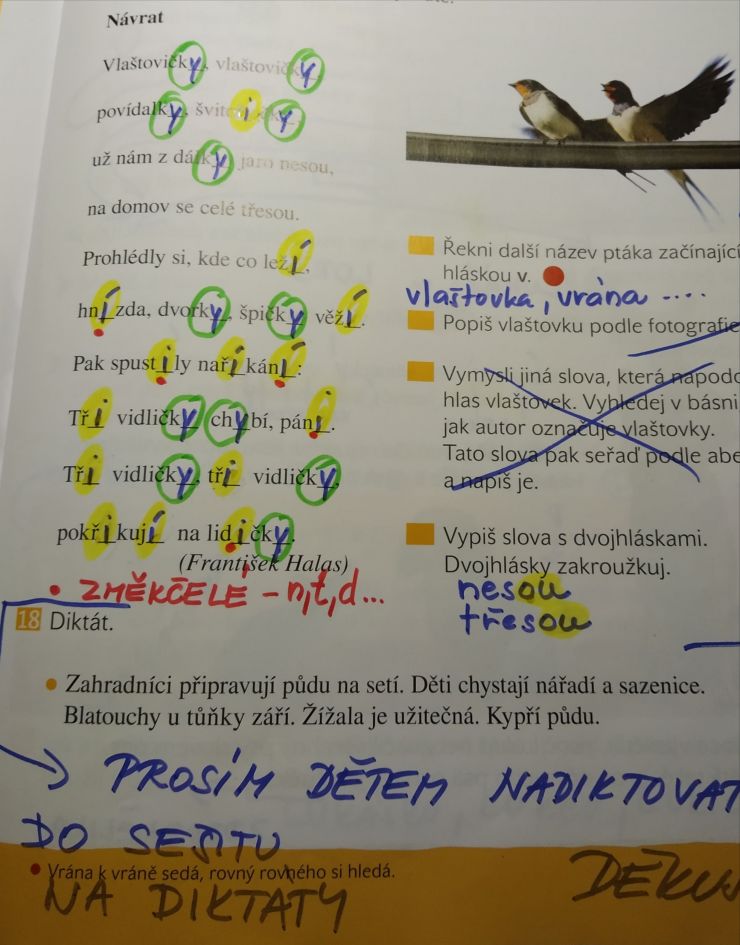 Návrat
Vlaštovičky, vlaštovičky,
povídalky, švitořilky,
už nám z dálky jaro nesou,
na domov se celé třesou.
Prohlédly si, kde co leží,
hnízda, dvorky, špičky věží.
Pak spustily naříkání:
Tři vidličky chybí, páni.
Tři vidličky, tři vidličky,
pokřikují na lidičky.
(František Halas)
• ZMĚKČELÉ – n, t, d...
Řekni další název ptáka začínající
hláskou v.
vlaštovka, vrána ....
Popiš vlaštovku podle fotografie
Vymysli jiná slova, která napodo
hlas vlaštovek. Vyhledej v básni
jak autor označuje vlaštovky.
Tato slova pak seřaď podle abe
a napiš je.
Vypiš slova s dvojhláskami.
Dvojhlásky zakroužkuj.
nesou
třesou
18 Diktát.
• Zahradníci připravují půdu na setí. Děti chystají nářadí a sazenice.
Blatouchy u tůňky září. Žížala je užitečná. Kypří půdu.
→ PROSÍM DĚTEM NADIKTOVAT
DO SEŠITU
• Vrána k vráně sedá, rovný rovného si hledá.
NA DIKTÁTY
DĚKUJ